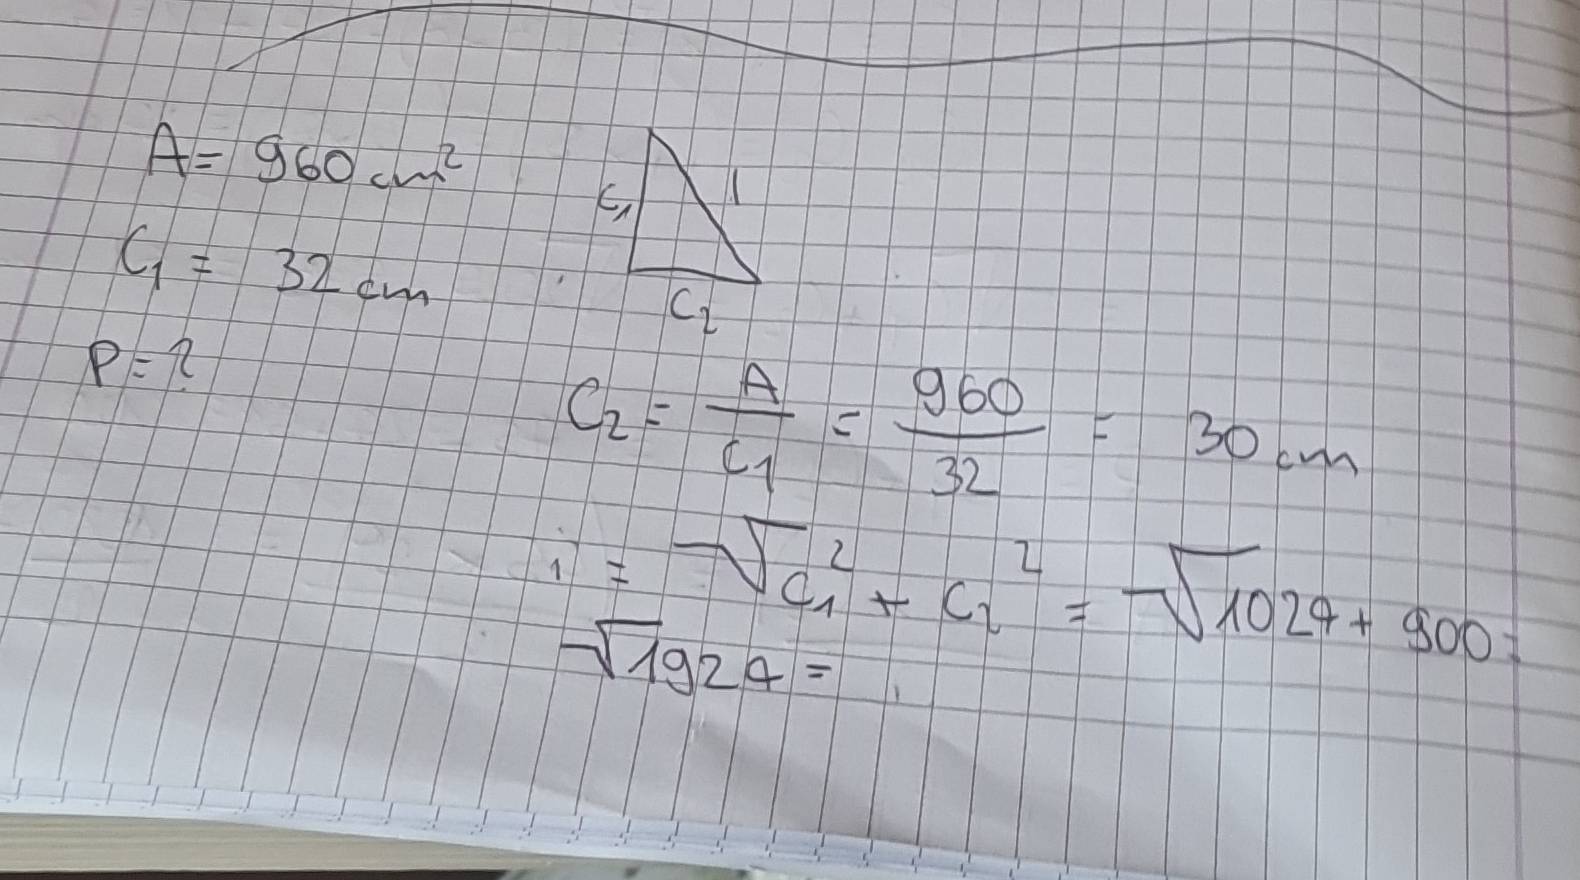 A = 960 cm²
C₁ = 32 cm
P = ?
C₁
i
C₂
C₂ = A/C₁ = 960/32 = 30 cm
i = √C₁² + C₂² = √1024 + 900 =
√1924 =